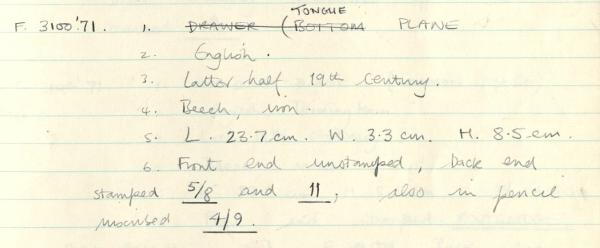 TONGUE
F. 3100'.71. 1. DRAWER (BOTTOM PLANE
2. English.
3. Latter half 19th Century.
4. Beech, iron.
5. L. 23.7 cm. W. 3.3 cm. H. 8.5 cm.
6. Front end unstamped, back end
stamped 5/8 and 11, also in pencil
inscribed 4/9.